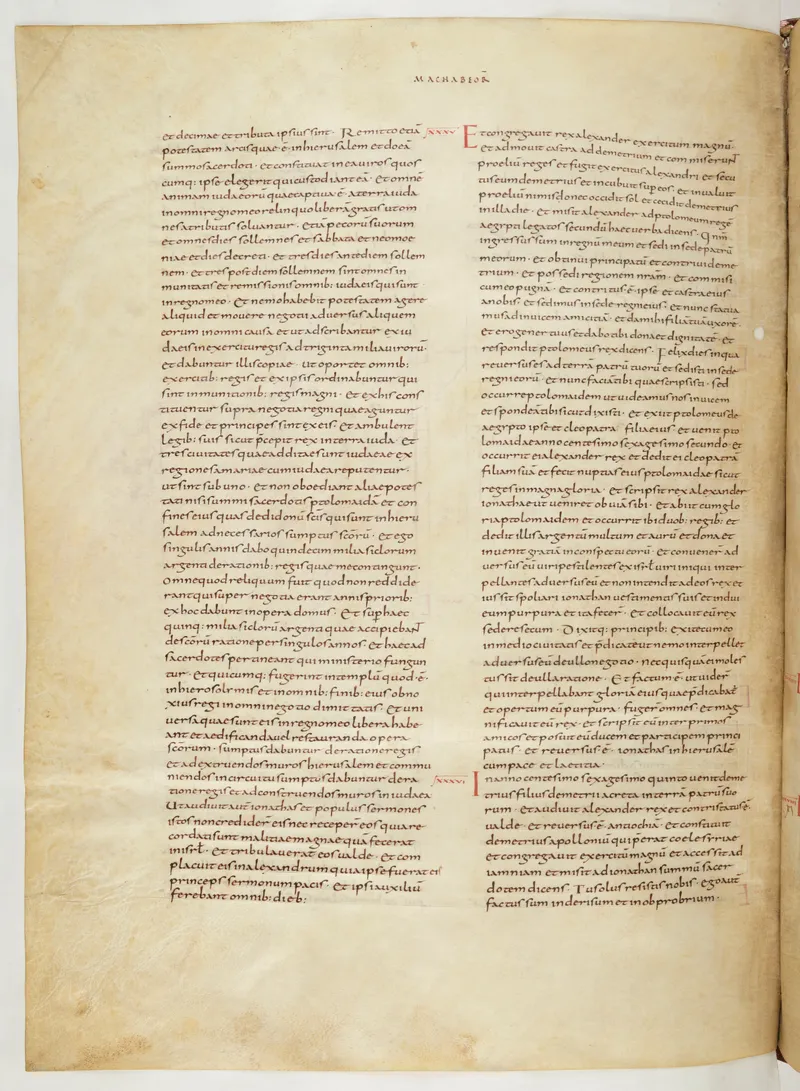 MACHABEOR̄
et decimae et tributa ipsius sint · Remitto etiā
potestatem arcis quae ē in hierusalem et do eā
summo sacerdoti · et constituat in ea uiros quos
cumq: ipse elegerit qui custodiant eā · Et omnē
animam iudaeorū quae captiua ē a terra iuda
in omni regno meo relinquo liberā gratis ut om
nes a tributis soluantur · etiā pecorū suorum
et omnes dies sollemnes et sabbata et neomoe
niae et dies decreti · et tres dies ante diem sollem
nem · et tres post diem sollemnem sint omnes in
munitatis et remissionis omnib: iudaeis qui sunt
in regno meo · Et nemo habebit potestatem agere
aliquid et mouere negotia aduersus aliquem
eorum in omni causa et ut adscribantur ex iu
daeis in exercitu regis ad triginta milia uirorū ·
et dabuntur illis copiae · ut oportet omnib:
exercitib: regis et ex ipsis ordinabuntur qui
sint in munitionib: regis magni · et ex his cons
tituentur supra negotia regni quae aguntur
ex fide et principes sint ex eis et ambulent
legib: suis sicut p̄cepit rex in terra iuda · Et
tres ciuitates quae additae sunt iudaeae ex
regione samariae cum iudaea reputentur ·
ut sint sub uno · et non oboediant aliae potes
tati nisi summi sacerdotis ptolomaidā et con
fines eius quas dedi donū sc̄is qui sunt in hieru
salem ad necessarios sumptus sc̄orū · et ego
singulis annis dabo quindecim milia siclorum
argenti de rationib: regis quae me contingunt ·
Omne quod reliquum fuit quod non reddide
rant qui super negotia erant annis priorib:
ex hoc dabunt in opera domus · Et sup̄ haec
quinq: milia siclorū argenti quae accipiebant
de sc̄orū ratione per singulos annos · et haec ad
sacerdotes pertineant qui ministerio fungun
tur · Et quicumq: fugerint in templū quod ē ·
in hierosolymis et in omnib: finib: eius obno
xii us regi in omni negotio dimittatis · et uni
uersa quae sunt eis in regno meo libera habe
ant et ad aedificanda uel restauranda opera
sc̄orum · sumptus dabuntur de ratione regis
et ad extruendos muros hierusalem et commu
niendos in circuitu sumptus dabuntur de ra
tione regis et ad construendos muros in iudaea
Ut audiuit aut̄ ionathas et populus sermones
istos non credider̄ eis nec receper̄ eos quia re
cordati sunt malitiae magnae qua fecerat
in isrl̄ · et tribulauerat eos ualde · et com
placuit eis in alexandrum quia ipse fuerat eis
princeps sermonum pacis · et ipsi auxiliū
ferebant omnib: dieb:
xxxv Et congregauit rex alexander exercitum magnū
et admouit castra ad demetrium et commiserunt
proeliū reges et fugit exercitus alexandri et secu
tus eum demetrius et incubuit sup̄ eos et inualuit
proeliū nimis donec occidit sol et cecidit demetrius
in illa die · Et misit alexander ad ptolomeum regē
aegypti legatos secundū haec uerba dicens · Qnm̄
ingressus sum in regnū meum et sedi in sede patrū
meorum · et obtinui principatū et contriui deme
trium · et possedi regionem nram̄ · et commisi
cum eo pugnā · et contritus ē ipse et castra eius
a nobis et sedimus in sede regni eius et nunc statua
mus ad inuicem amicitiā · et da mihi filiā tuā uxorē ·
et ero gener tuus et dabo tibi dona et dignitatē · et
respondit ptolomeus rex dicens · Felix dies in qua
reuersus es ad terrā patrū tuorū et sedisti in sede
regni eorū · et nunc faciā tibi quae scripsisti · sed
occurre ptolomaidem ut uideamus nos inuicem
et spondeā tibi sicut dixisti · et exiit ptolomeus de
aegypto ipse et cleopatra filia eius et uenit pto
lomaidae anno centesimo sexagesimo secundo · et
occurrit ei alexander rex et dedit ei cleopatrā
filiam suā et fecit nuptias eius ptolomaidae sicut
reges in magna gloria · Et scripsit rex alexander
ionathae ut ueniret obuiā sibi · et abiit cum glo
ria ptolomaidem et occurrit ibi duob: regib: et
dedit illis argentū multum et aurū et dona et
inuenit gratiā in conspectu eorū · et conuener̄ ad
uersus eū uiri pestilentes ex isrl̄ uiri iniqui inter
pellantes aduersus eū et non intendit ad eos rex et
iussit spoliari ionathan uestimentis suis et indui
eum purpura et ita fecer̄ · Et collocauit eū rex
sedere secum · Dixitq: principib: exite cum eo
in medio ciuitatis et p̄dicate ut nemo interpellet
aduersus eū de ullo negotio · nec quisquā ei moles
tus sit de ulla ratione · Et factum ē · ut uider̄
qui interpellabant gloriā eius quae p̄dicabat̄
et opertum eū purpura · fuger̄ omnes et mag
nificauit eū rex · et scripsit eū inter primos
amicos et posuit eū ducem et participem princi
patus · et reuersus ē · ionathas in hierusalē
cum pace et laetitia ·
xxxvi In anno centesimo sexagesimo quinto uenit deme
trius filius demetrii a creta in terrā patrū suo
rum · Et audiuit alexander rex et contristatus ē ·
ualde · et reuersus ē · antiochiā · et constituit
demetrius apolloniū qui p̄erat coelesyriae
et congregauit exercitū magnū et accessit ad
iamniam et misit ad ionathan summū sacer
dotem dicens · Tu solus resistis nobis · ego aut̄
factus sum in derisum et in obprobrium ·